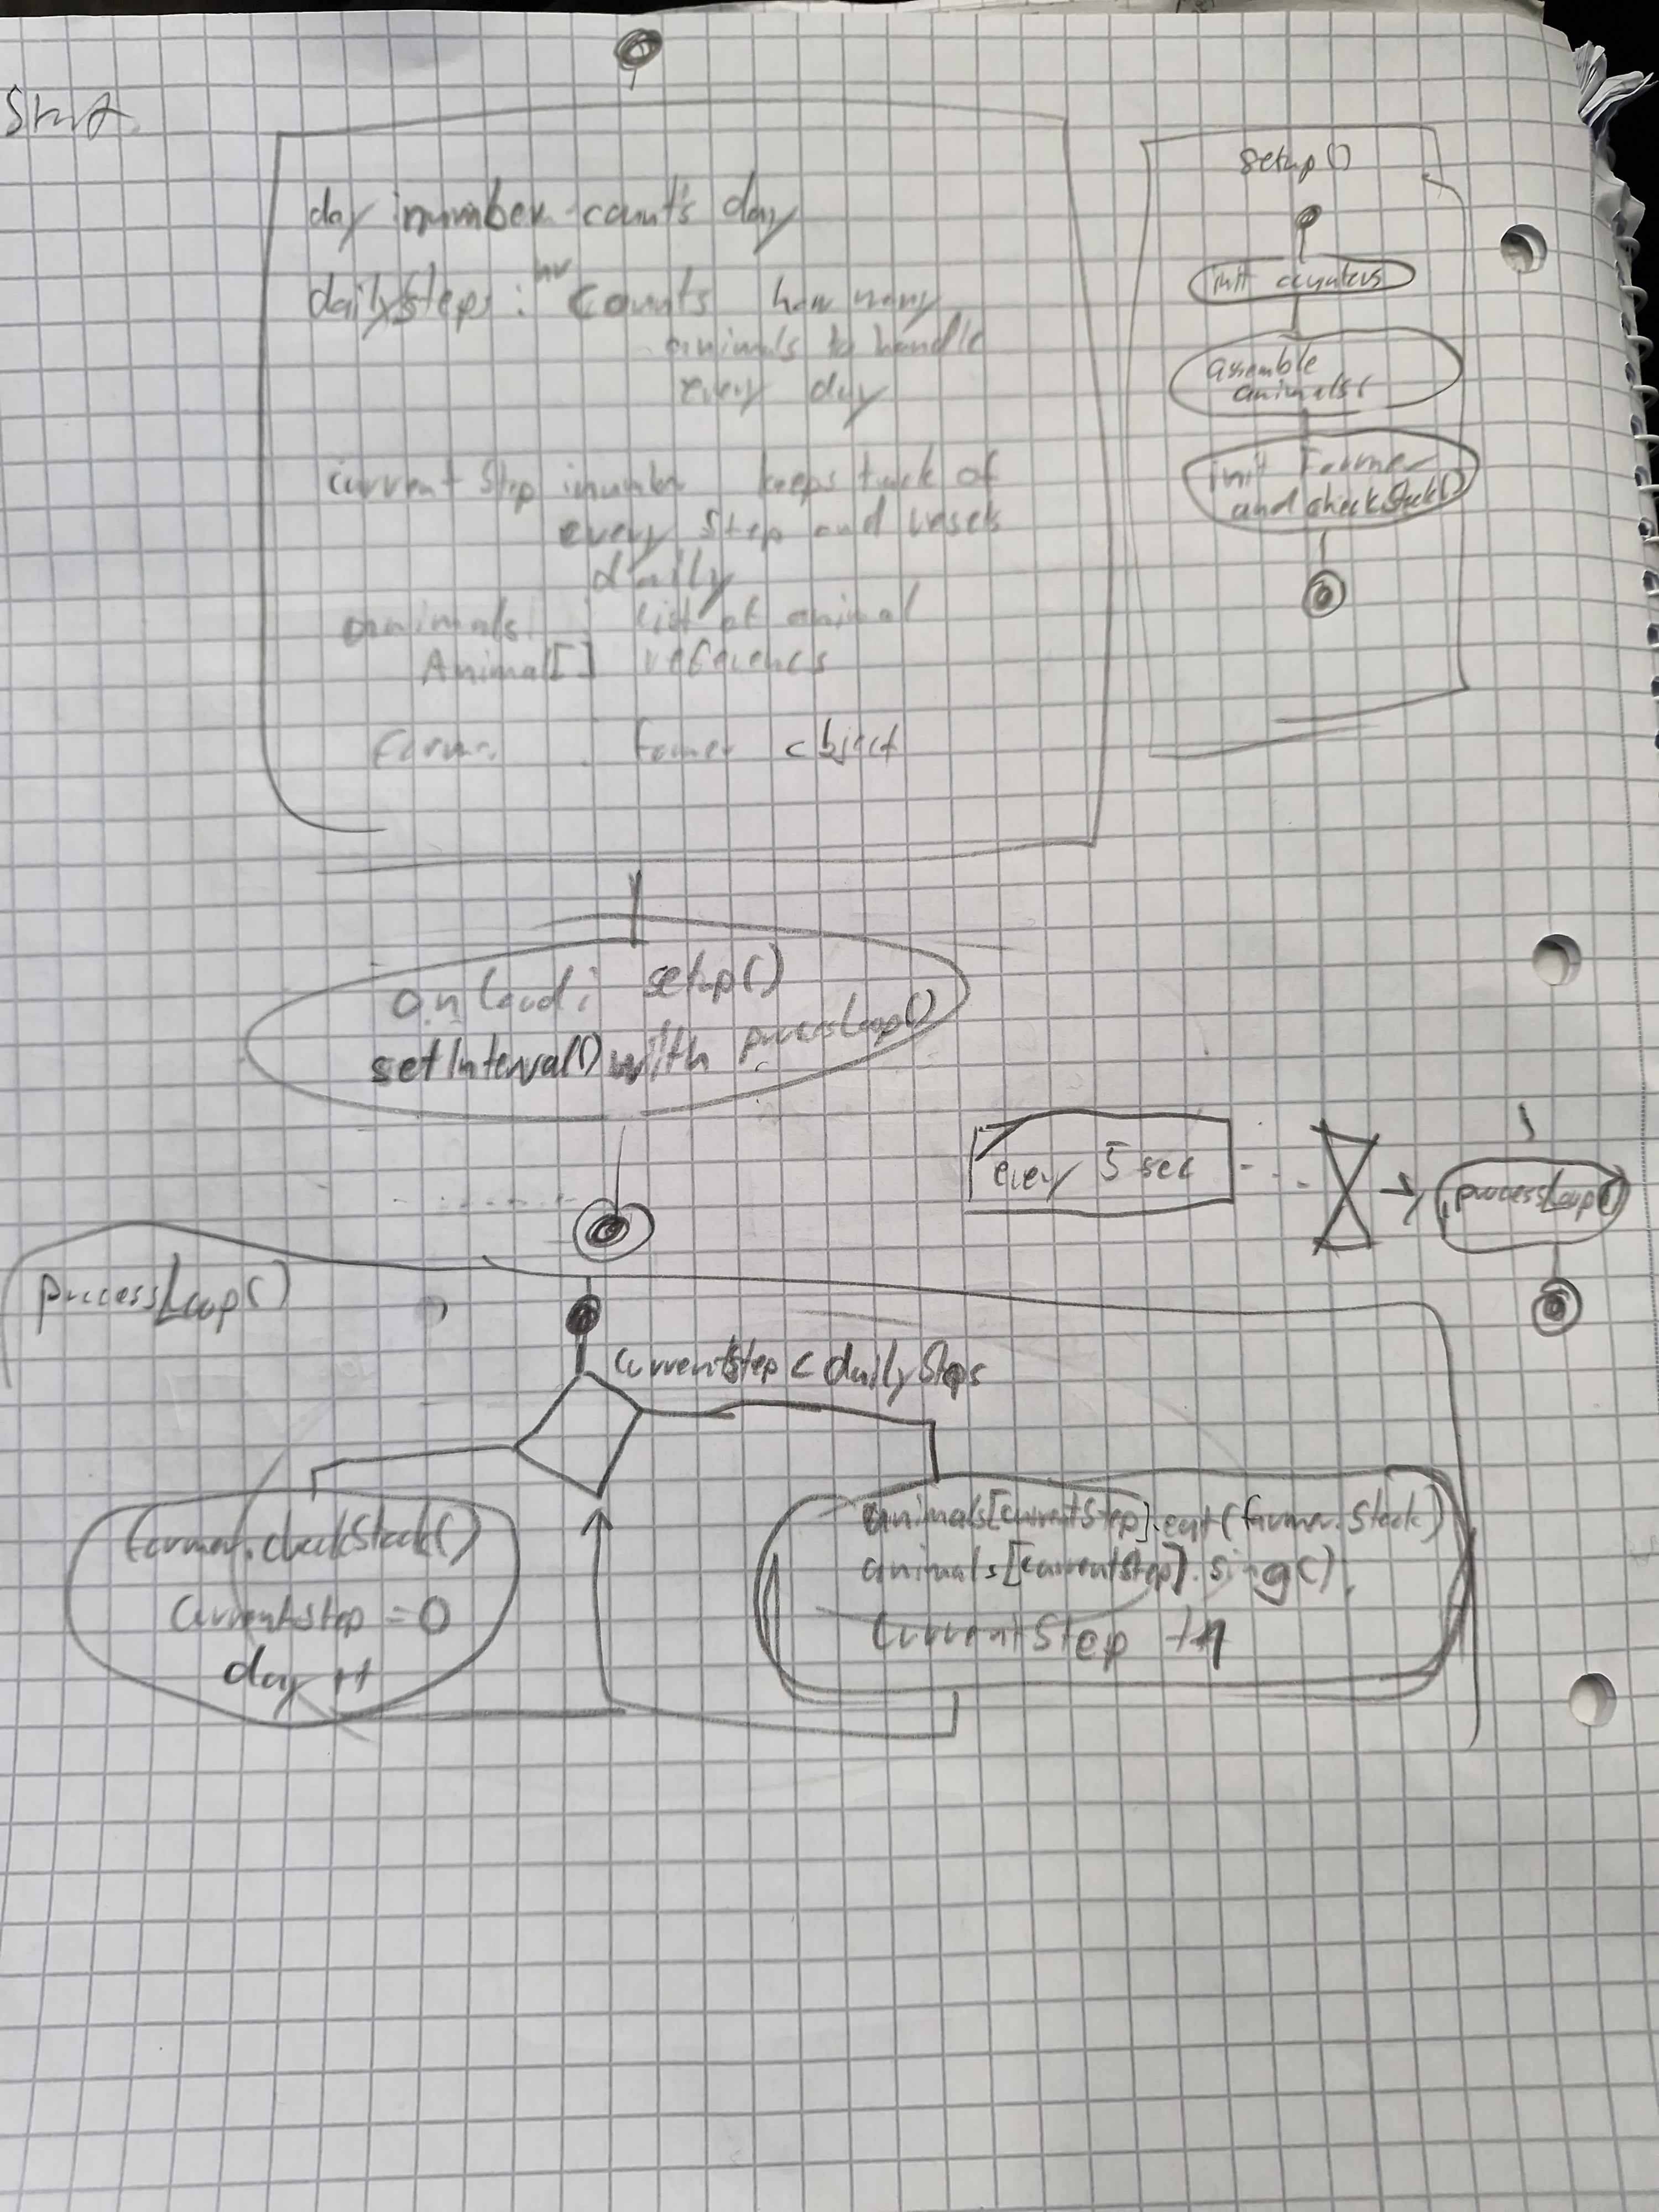 Start
day : number counts day
dailySteps : nr counts how many
animals to handle
every day
currentStep : number keeps track of
every step and resets
daily
animals : list of animal
Animal[] references
Farmer : Farmer object
setup()
init counters
assemble
animals
init Farmer
and checkStock()
onload: setup()
setInterval() with processLoop()
every 5 sec
processLoop()
processLoop()
currentStep < dailySteps
farmer.checkStock()
currentStep = 0
day ++
animals[currentStep].eat(farmer.Stock)
animals[currentStep].sing(),
currentStep ++